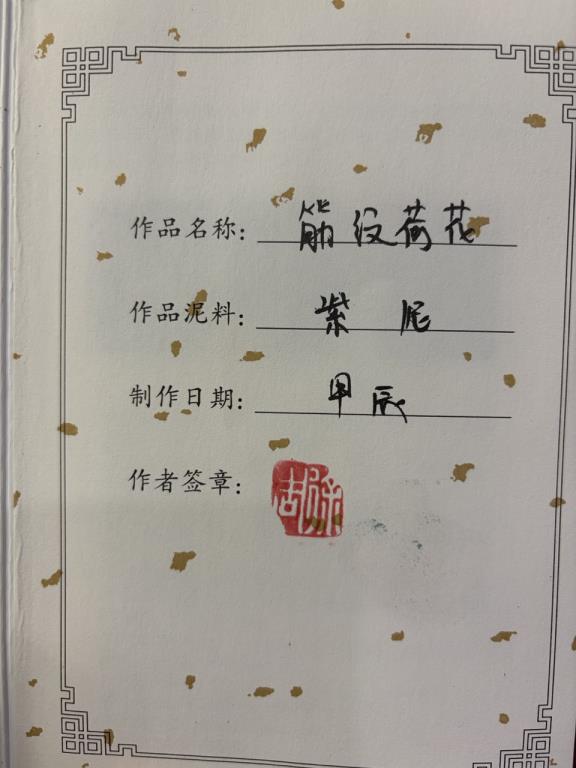 作品名称：筋纹荷花
作品泥料：紫泥
制作日期：甲辰
作者签章：